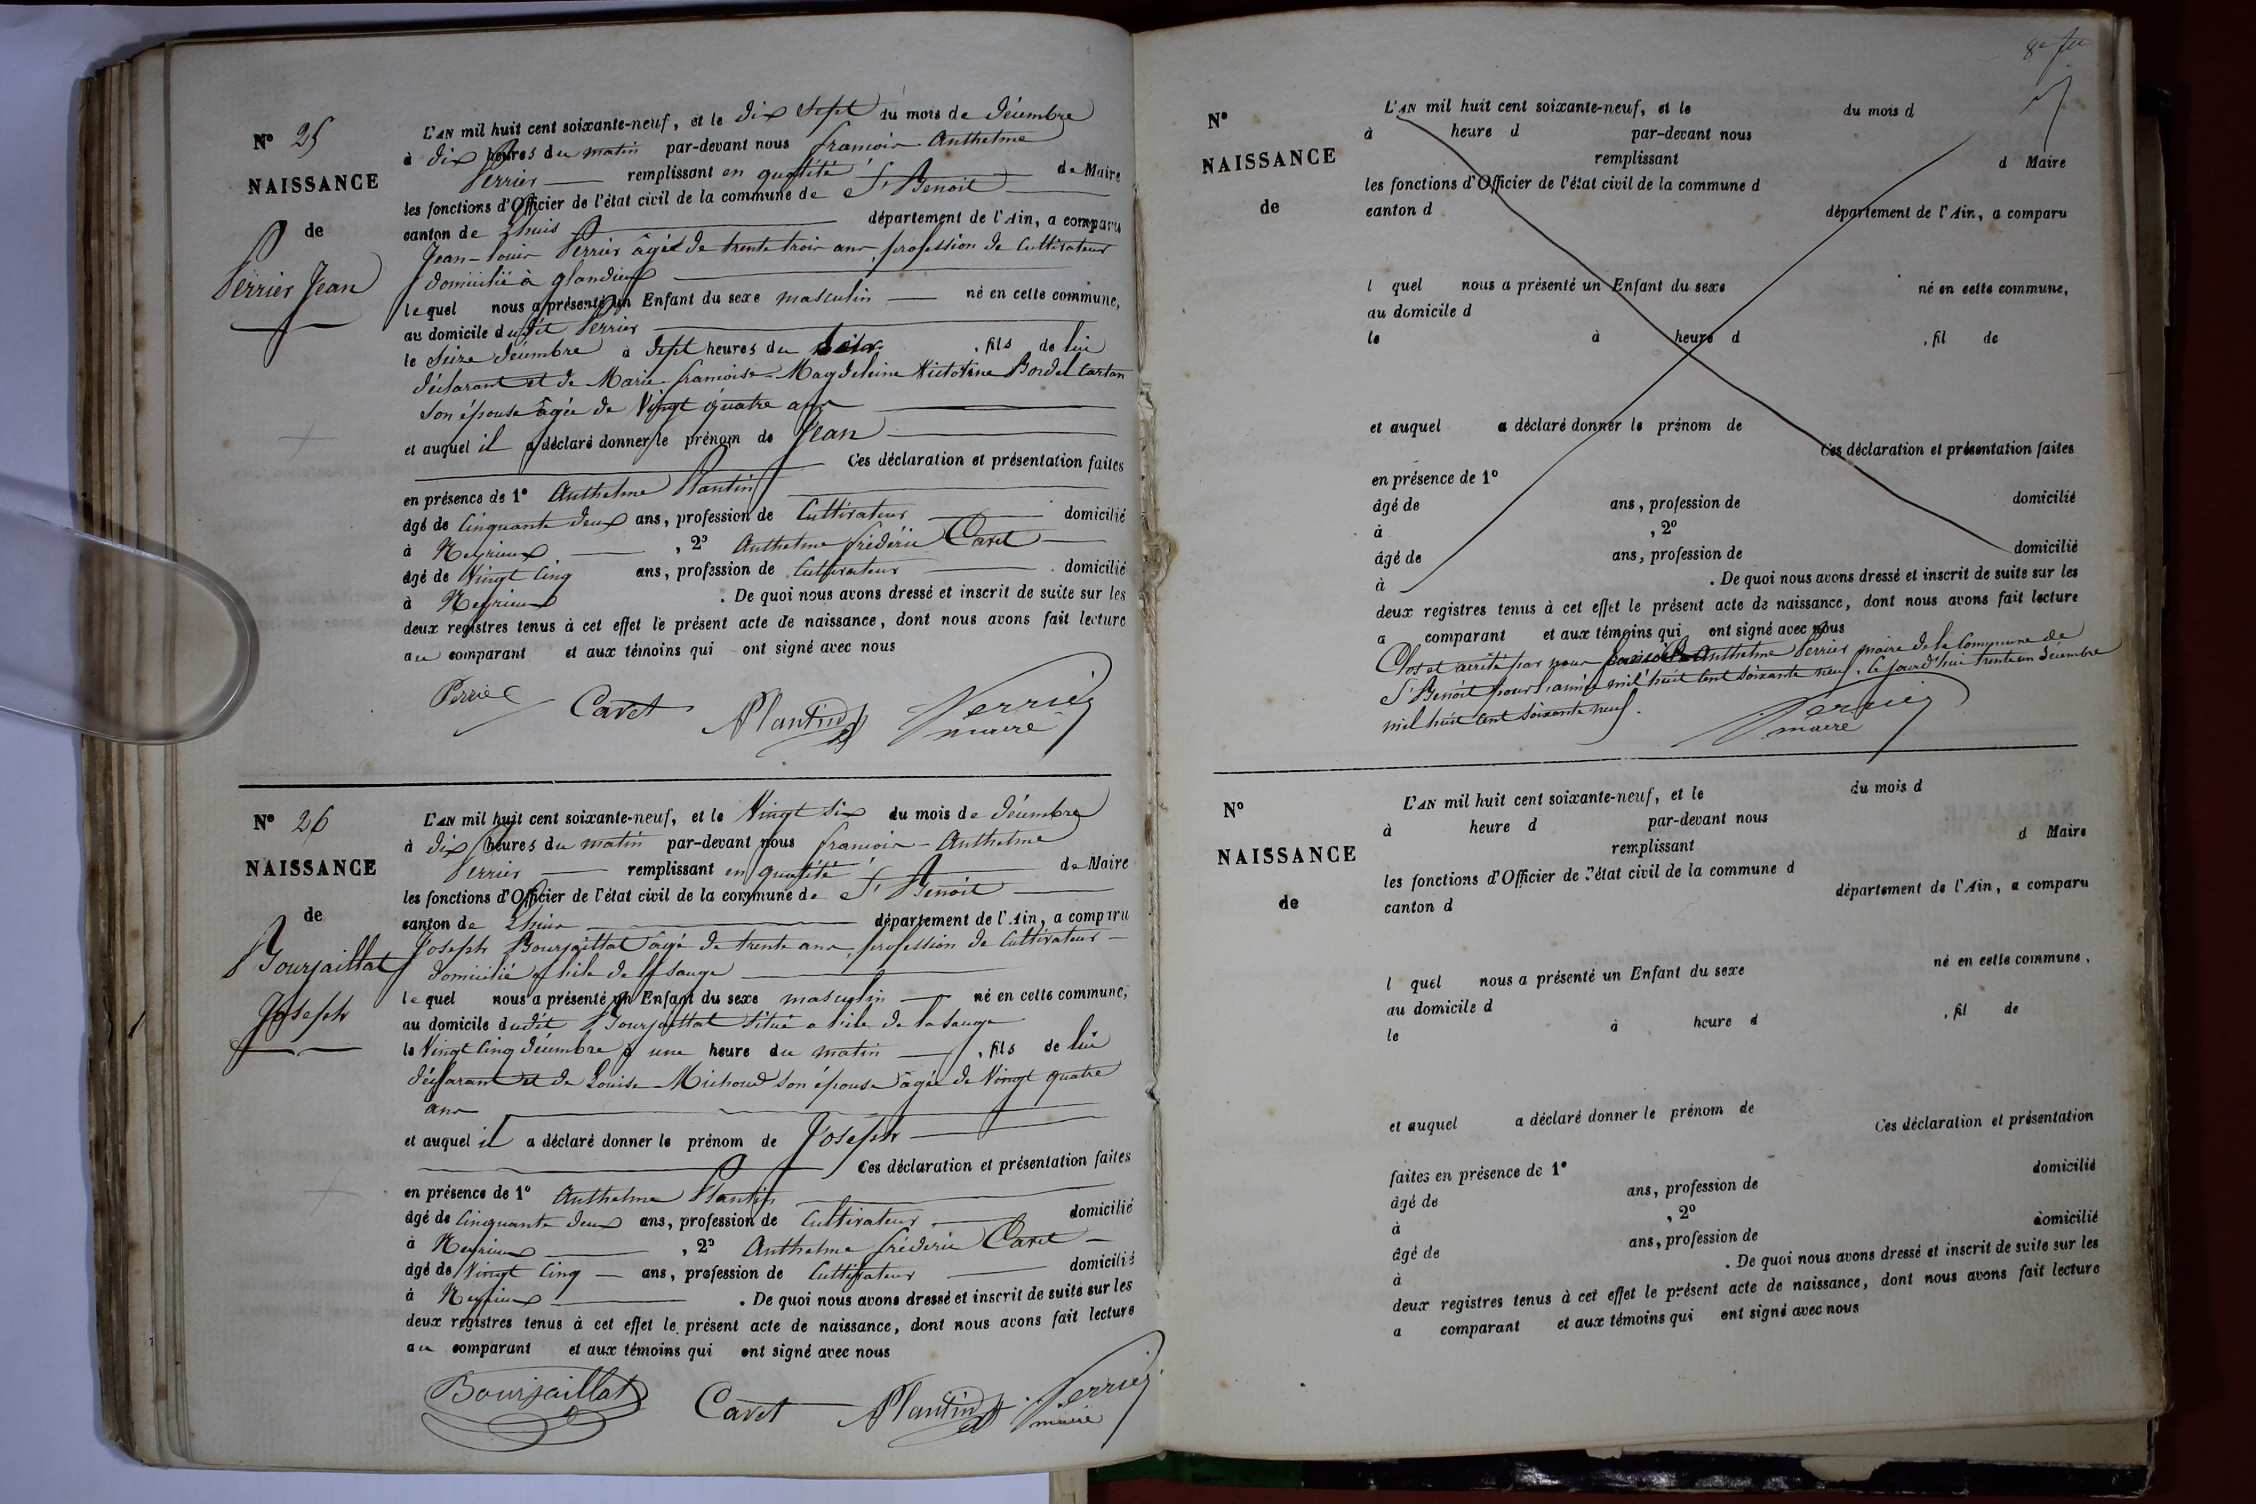 N° 25
NAISSANCE
de
Perrier Jean
L'AN mil huit cent soixante-neuf, et le dix sept du mois de décembre
à dix heures du matin par-devant nous françois Anthelme
Perrier remplissant en qualité de Maire
les fonctions d'Officier de l'état civil de la commune de St Benoit
canton de Lhuis département de l'Ain, a comparu
Jean-Louis Perrier âgé de trente trois ans, profession de Cultivateur
domicilié à glandieu
lequel nous a présenté un Enfant du sexe masculin né en cette commune,
au domicile dudit Perrier
le Seize décembre à Sept heures du Soir, fils de lui
déclarant et de Marie françoise Magdeleine Victorine Bordel Cartan
son épouse âgée de Vingt quatre ans
et auquel il a déclaré donner le prénom de Jean
Ces déclaration et présentation faites
en présence de 1° Anthelme Plantin
âgé de Cinquante deux ans, profession de Cultivateur domicilié
à Neyrieux, 2° Anthelme fréderic Cavet
âgé de Vingt Cinq ans, profession de Cultivateur domicilié
à Neyrieux. De quoi nous avons dressé et inscrit de suite sur les
deux registres tenus à cet effet le présent acte de naissance, dont nous avons fait lecture
au comparant et aux témoins qui ont signé avec nous
Perrier Cavet APlantin Perrier
maire
N° 26
NAISSANCE
de
Bourjaillat
Joseph
L'AN mil huit cent soixante-neuf, et le Vingt six du mois de décembre
à dix heures du matin par-devant nous françois-Anthelme
Perrier remplissant en qualité de Maire
les fonctions d'Officier de l'état civil de la commune de St Benoit
canton de Lhuis département de l'Ain, a comparu
Joseph Bourjaillat âgé de trente ans, profession de Cultivateur
domicilié à l'ile de la sauge
lequel nous a présenté un Enfant du sexe masculin né en cette commune,
au domicile dudit Bourjaillat situé a l'ile de la Sauge
le Vingt Cinq décembre à une heure du matin, fils de lui
déclarant et de Louise Michoud son épouse âgée de Vingt quatre
ans
et auquel il a déclaré donner le prénom de Joseph
Ces déclaration et présentation faites
en présence de 1° Anthelme Plantin
âgé de Cinquante deux ans, profession de Cultivateur domicilié
à Neyrieux, 2° Anthelme fréderic Cavet
âgé de Vingt Cinq ans, profession de Cultivateur domicilié
à Neyrieux. De quoi nous avons dressé et inscrit de suite sur les
deux registres tenus à cet effet le présent acte de naissance, dont nous avons fait lecture
au comparant et aux témoins qui ont signé avec nous
Bourjaillat Cavet APlantin Perrier
maire
N°
NAISSANCE
de
L'AN mil huit cent soixante-neuf, et le du mois d
à heure d par-devant nous
remplissant d Maire
les fonctions d'Officier de l'état civil de la commune d
canton d département de l'Ain, a comparu
l quel nous a présenté un Enfant du sexe né en cette commune,
au domicile d
le à heure d , fil de
et auquel a déclaré donner le prénom de
Ces déclaration et présentation faites
en présence de 1°
âgé de ans, profession de domicilié
à , 2°
âgé de ans, profession de domicilié
à . De quoi nous avons dressé et inscrit de suite sur les
deux registres tenus à cet effet le présent acte de naissance, dont nous avons fait lecture
a comparant et aux témoins qui ont signé avec nous
Clos et arrêté par nous françois Anthelme Perrier maire de la Commune de
St Benoit pour l'année mil huit Cent soixante neuf. Ce jourd'hui trente un décembre
mil huit Cent soixante neuf.
Perrier
maire
N°
NAISSANCE
de
L'AN mil huit cent soixante-neuf, et le du mois d
à heure d par-devant nous
remplissant d Maire
les fonctions d'Officier de l'état civil de la commune d
canton d département de l'Ain, a comparu
l quel nous a présenté un Enfant du sexe né en cette commune,
au domicile d
le à heure d , fil de
et auquel a déclaré donner le prénom de
Ces déclaration et présentation
faites en présence de 1°
âgé de ans, profession de domicilié
à , 2°
âgé de ans, profession de domicilié
à . De quoi nous avons dressé et inscrit de suite sur les
deux registres tenus à cet effet le présent acte de naissance, dont nous avons fait lecture
a comparant et aux témoins qui ont signé avec nous